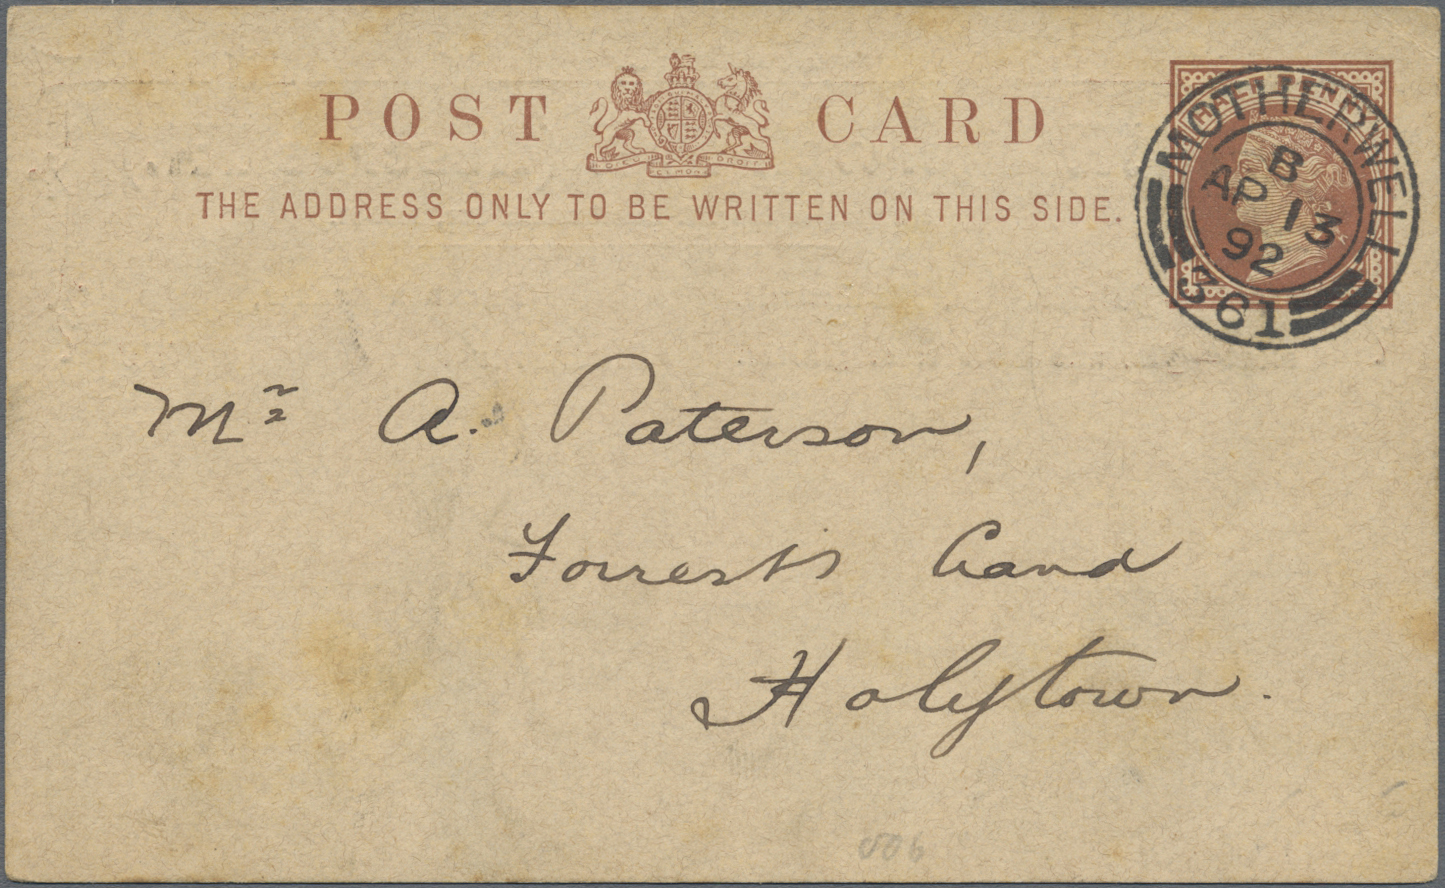 POST CARD
THE ADDRESS ONLY TO BE WRITTEN ON THIS SIDE.
HALFPENNY
MOTHERWELL
B
AP 13
92
361
Mr A. Paterson,
Forrest's Land
Holytown.